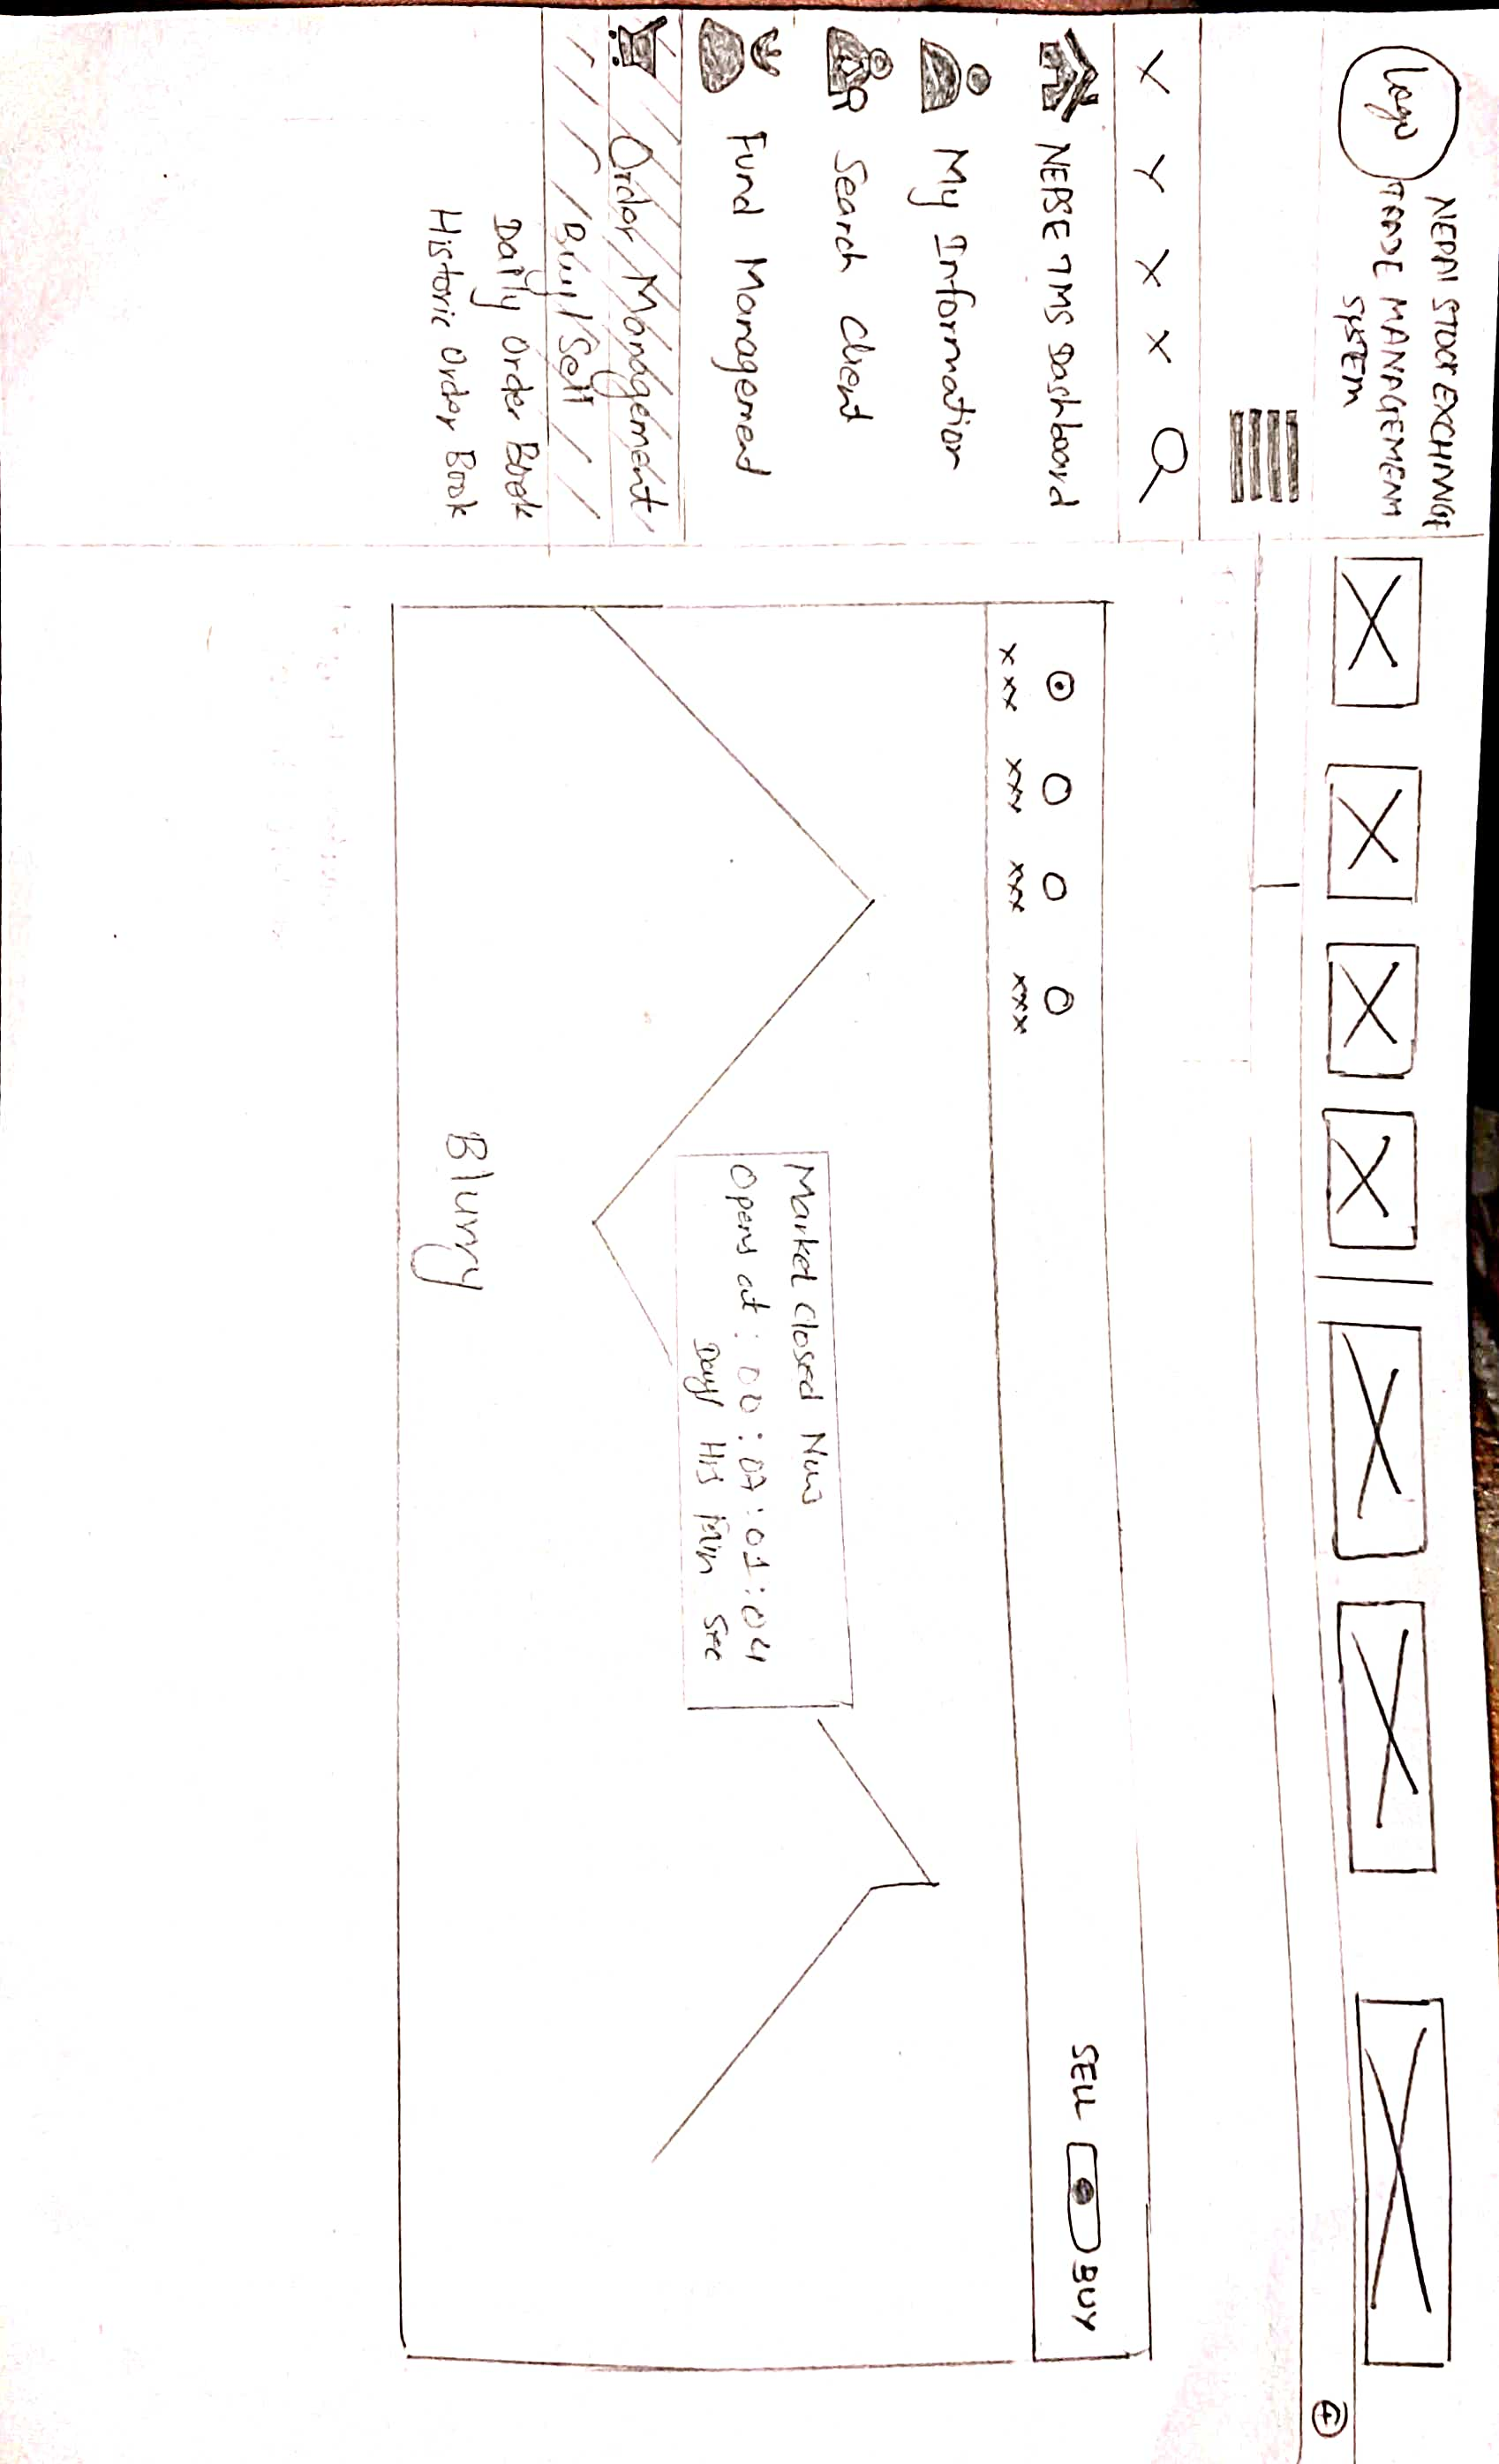 Logo
NEPAL STOCK EXCHANGE
TRADE MANAGEMENT
SYSTEM
X Y X X
NEPSE TMS Dashboard
My Information
Search Client
Fund Management
Order Management
Buy/Sell
Daily Order Book
Historic Order Book
xxx xxx xxx xxx
SELL BUY
Market Closed Now
Opens at : 00 : 07 : 01 : 04
Day Hrs Min Sec
Blurry
4